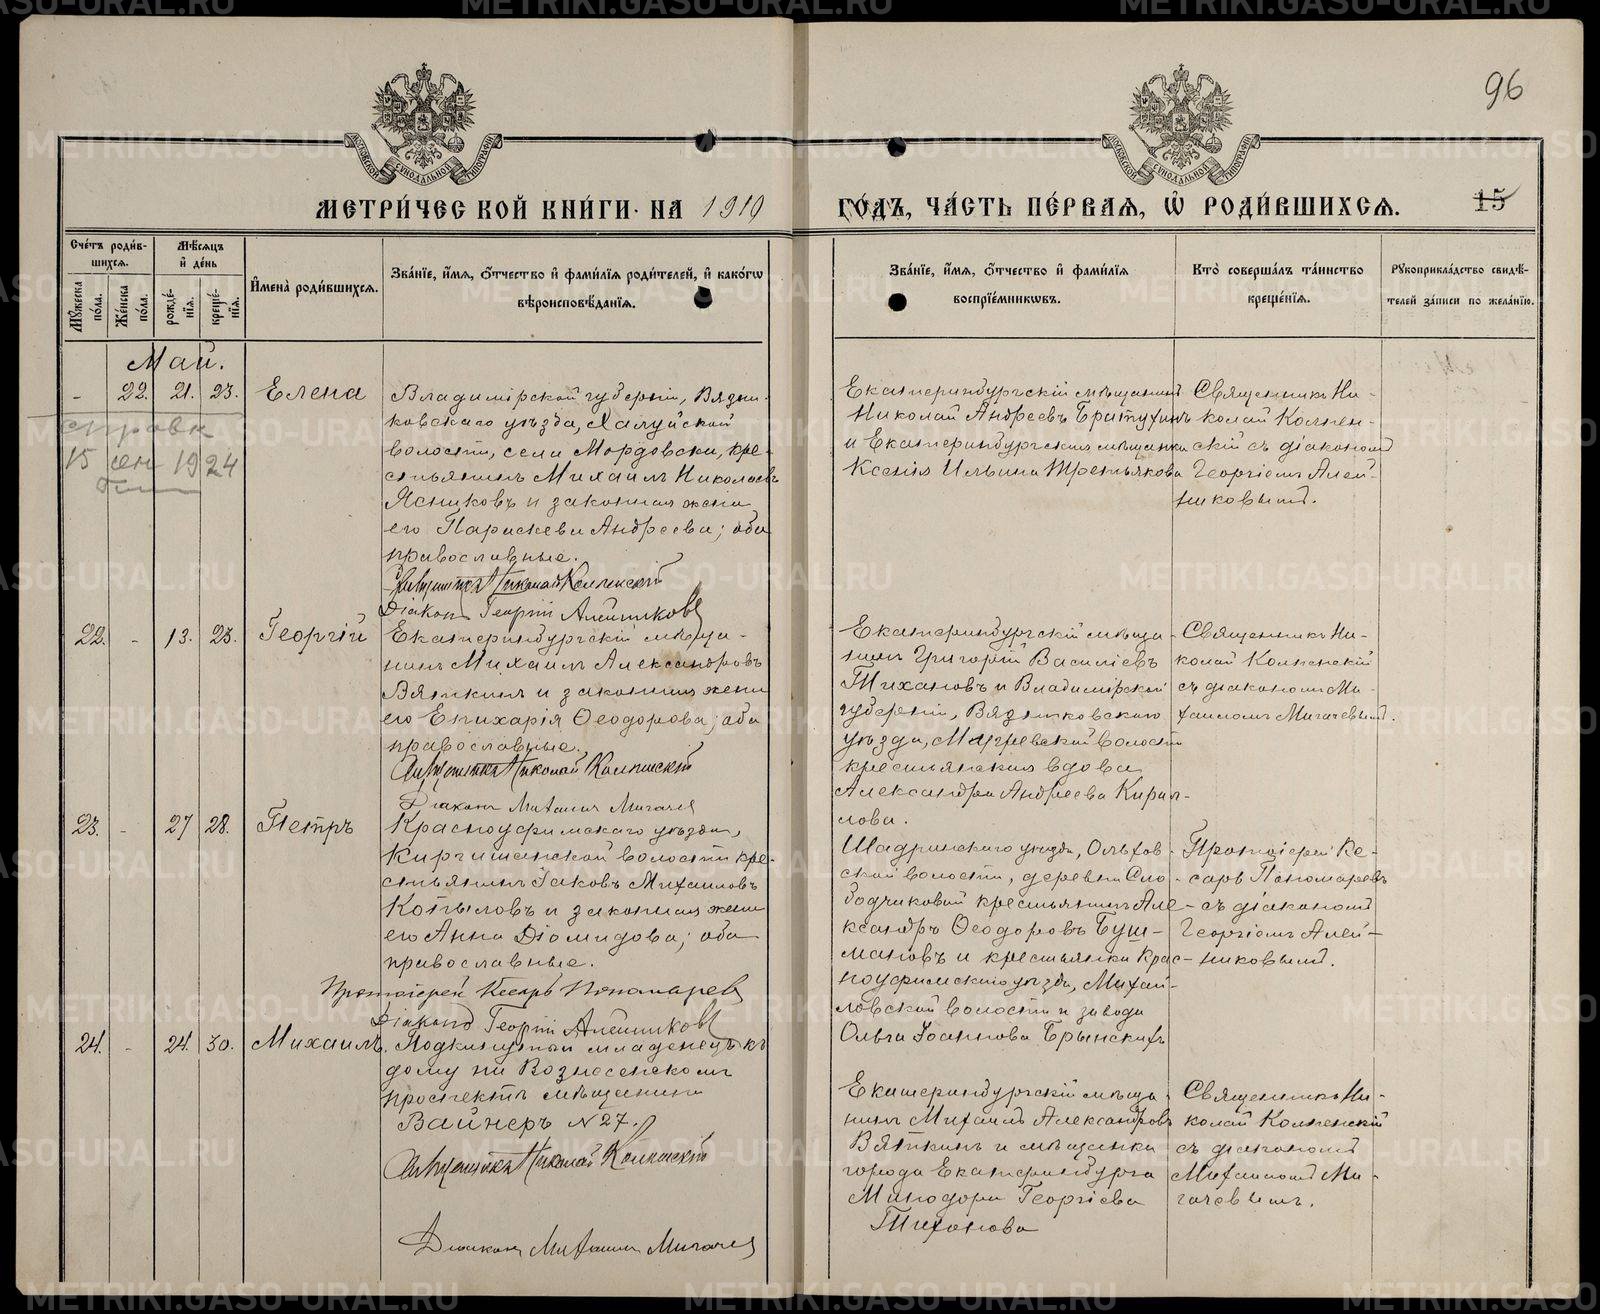 96
МОСКОВСКОЙ СѴНОДАЛЬНОЙ ТИПОГРАФІИ
МОСКОВСКОЙ СѴНОДАЛЬНОЙ ТИПОГРАФІИ
МЕТРИ́ЧЕСКОЙ КНИ́ГИ НА 1919
ГО́ДЪ, ЧА́СТЬ ПЕ́РВАѦ, Ѡ РОДИ́ВШИХСѦ.
15
Сче́тъ роди́в-
шихсѧ.
Мѣ́сѧцъ
и҆ де́нь
Мꙋ́жеска
по́ла.
Же́нска
по́ла.
рожде́-
нїѧ.
креще́-
нїѧ.
И҆мена̀ роди́вшихсѧ.
Зва́нїе, и҆́мѧ, ѻ҆́тчество и҆ фами́лїѧ роди́телей, и҆ како́гѡ
вѣроисповѣ́данїѧ.
Зва́нїе, и҆́мѧ, ѻ҆́тчество и҆ фами́лїѧ
воспрїе́мникѡвъ.
Кто̀ соверша́лъ та́инство
креще́нїѧ.
Рꙋкоприкла́дство свидѣ́-
телей за́писи по жела́нїю.
Май.
- 22. 21. 23. Елена
справк
15 сен 1924
Владимірской губерніи, Вязни-
ковскаго уѣзда, Халуйской
волости, села Мордовска, кре-
стьянинъ Михаилъ Николаевъ
Ясниковъ и законная жена
его Параскева Андреева; оба
православные.
Священникъ Николай Колченскій
Діаконъ Георгій Алейниковъ
Екатеринбургскій мѣщанинъ
Николай Андреевъ Братухинъ
и Екатеринбургская мѣщанка
Ксенія Ильина Третьякова
Священникъ Ни-
колай Колчен-
скій съ діакономъ
Георгіемъ Алей-
никовымъ.
22. - 13. 23. Георгій
Екатеринбургскій мѣща-
нинъ Михаилъ Александровъ
Вяткинъ и законная жена
его Епихарія Ѳеодорова; оба
православные.
Священникъ Николай Колченскій
Діаконъ Михаилъ Мигачев
Екатеринбургскій мѣща-
нинъ Григорій Василіевъ
Тихановъ и Владимірской
губерніи, Вязниковскаго
уѣзда, волости
крестьянская вдова
Александра Андреева Кирил-
лова.
Священникъ Ни-
колай Колченскій
съ діакономъ Ми-
хаиломъ Мигачевымъ.
23. - 27 28. Петръ
Красноуфимскаго уѣзда,
Киргишанской волости кре-
стьянинъ Іаковъ Михаиловъ
Копыловъ и законная жена
его Анна Діомидова; оба
православные.
Протоіерей Кесарь Пономарев
Діаконъ Георгій Алейниковъ
Шадринскаго уѣзда, Ольхов-
ской волости, деревни Сло-
бодчиковой крестьянинъ Але-
ксандръ Ѳеодоровъ Буш-
мановъ и крестьянка Крас-
ноуфимскаго уѣзда, Михай-
ловской волости и завода
Ольга Іоаннова Брынскихъ
Протоіерей Ке-
сарь Пономаревъ
съ діакономъ
Георгіемъ Алей-
никовымъ.
24. - 24. 30. Михаилъ.
Подкинутый младенецъ къ
дому по Вознесенскомъ
проспектѣ мѣщанина
Вайнеръ №27.
Священникъ Николай Колченскій
Діаконъ Михаилъ Мигачев
Екатеринбургскій мѣща-
нинъ Михаилъ Александровъ
Вяткинъ и мѣщанка
города Екатеринбурга
Минодора Георгіева
Тиханова
Священникъ Ни-
колай Колченскій
съ діакономъ
Михаиломъ Ми-
гачевымъ.
METRIKI.GASO-URAL.RU